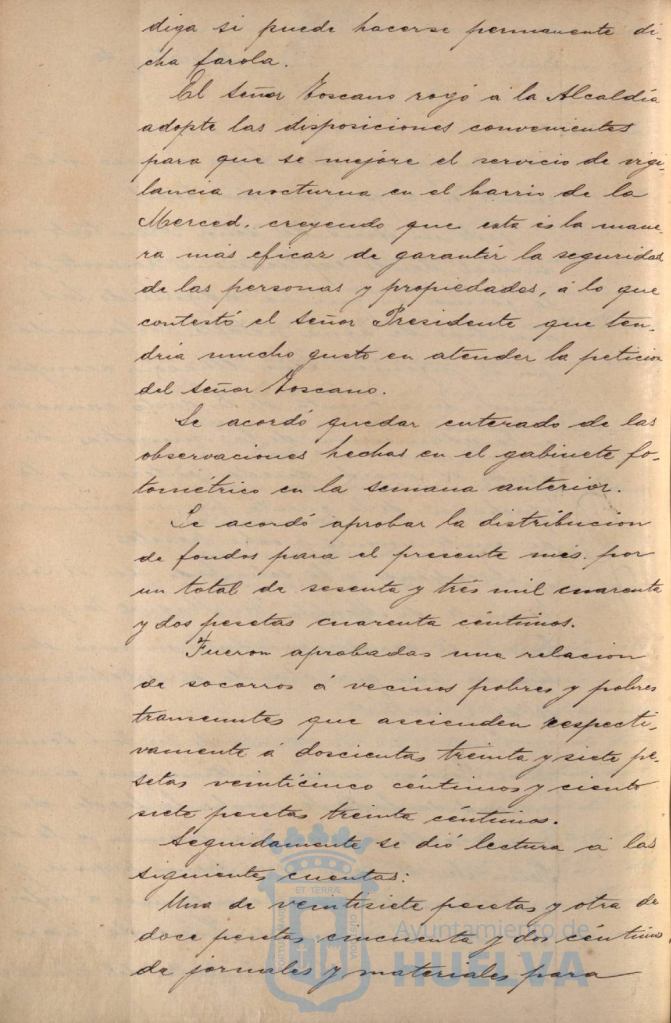 diga si puede hacerse permanente di-
cha farola.
El Señor Toscano rogó a la Alcaldía
adopte las disposiciones convenientes
para que se mejore el servicio de vigi-
lancia nocturna en el barrio de la
Merced, creyendo que esta es la mane-
ra mas eficaz de garantir la seguridad
de las personas y propiedades, á lo que
contestó el Señor Presidente que ten-
dria mucho gusto en atender la peticion
del Señor Toscano.
Se acordó quedar enterado de las
observaciones hechas en el gabinete fo-
tométrico en la semana anterior.
Se acordó aprobar la distribucion
de fondos para el presente mes por
un total de sesenta y tres mil cuarenta
y dos pesetas cuarenta céntimos.
Fueron aprobadas una relacion
de socorros á vecinos pobres y pobres
transeuntes que ascienden respecti-
vamente á doscientas treinta y siete pe-
setas veinticinco céntimos y ciento
siete pesetas treinta céntimos.
Seguidamente se dió lectura a las
siguientes cuentas:
Una de veintisiete pesetas y otra de
doce pesetas cincuenta y dos céntimos
de jornales y materiales para
Ayuntamiento de
HUELVA